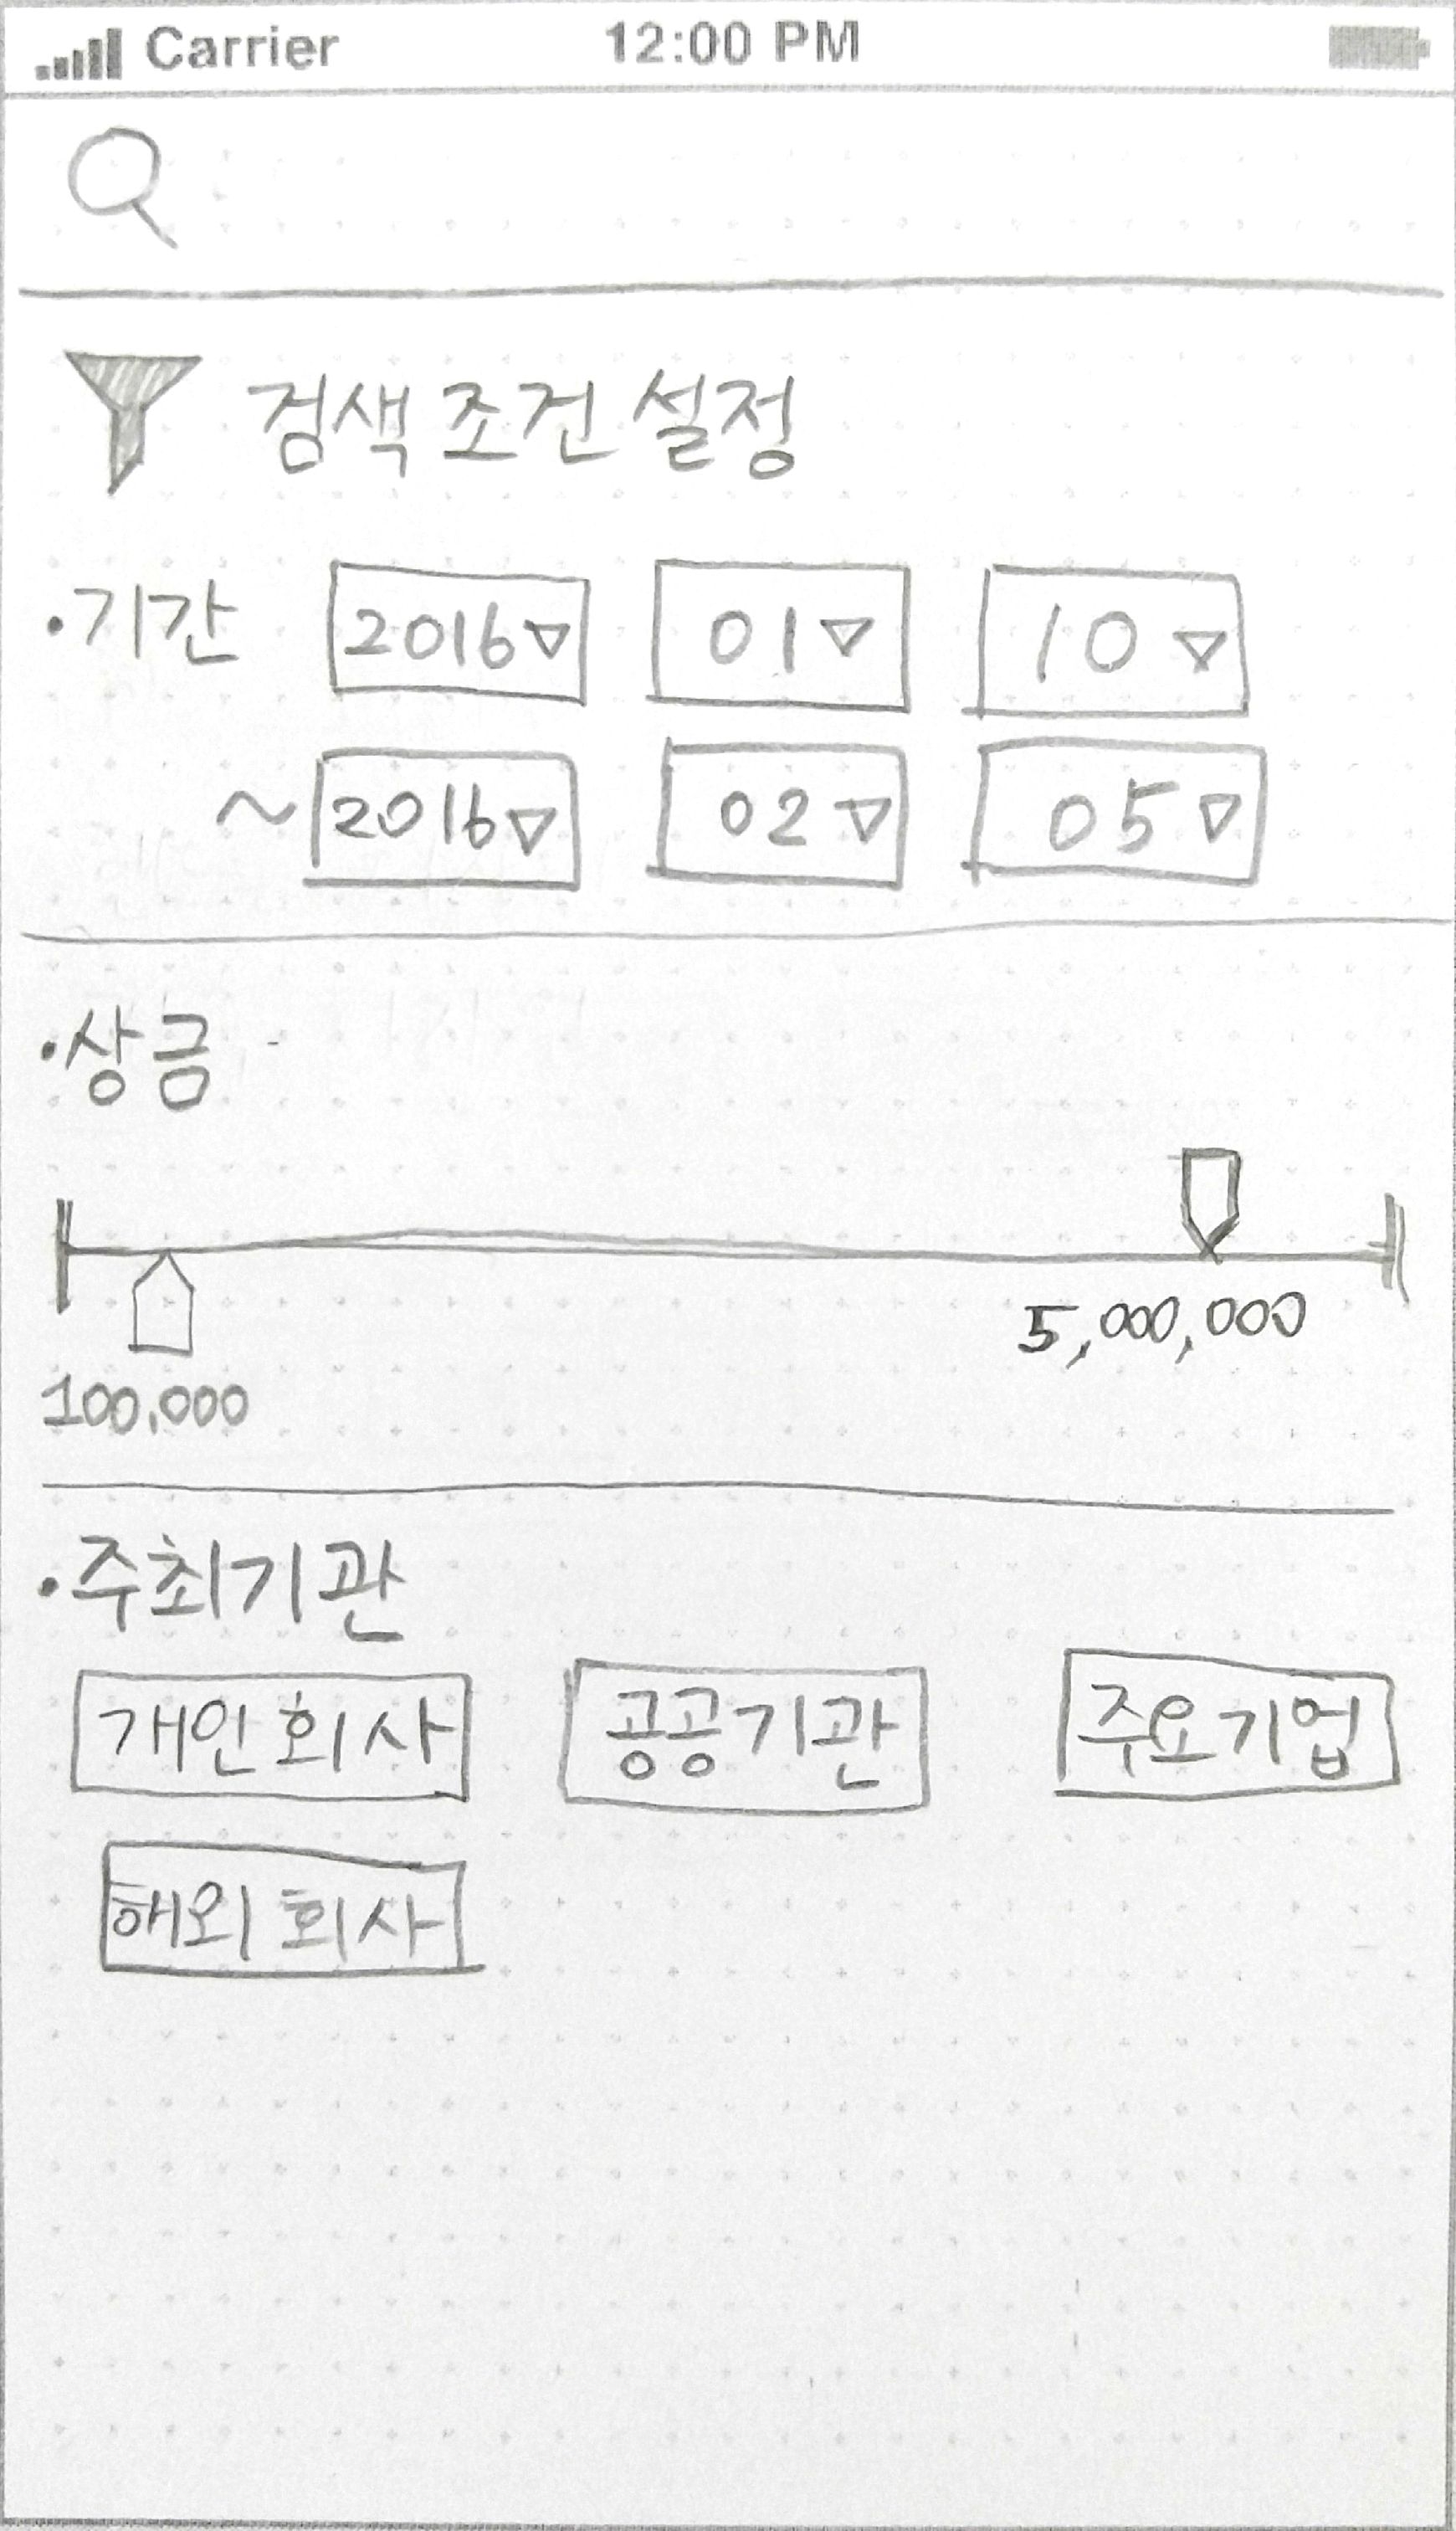 Carrier 12:00 PM
검색 조건 설정
·기간 2016▽ 01▽ 10▽
~2016▽ 02▽ 05▽
·상금
5,000,000
100,000
·주최기관
개인회사 공공기관 주요기업
해외 회사